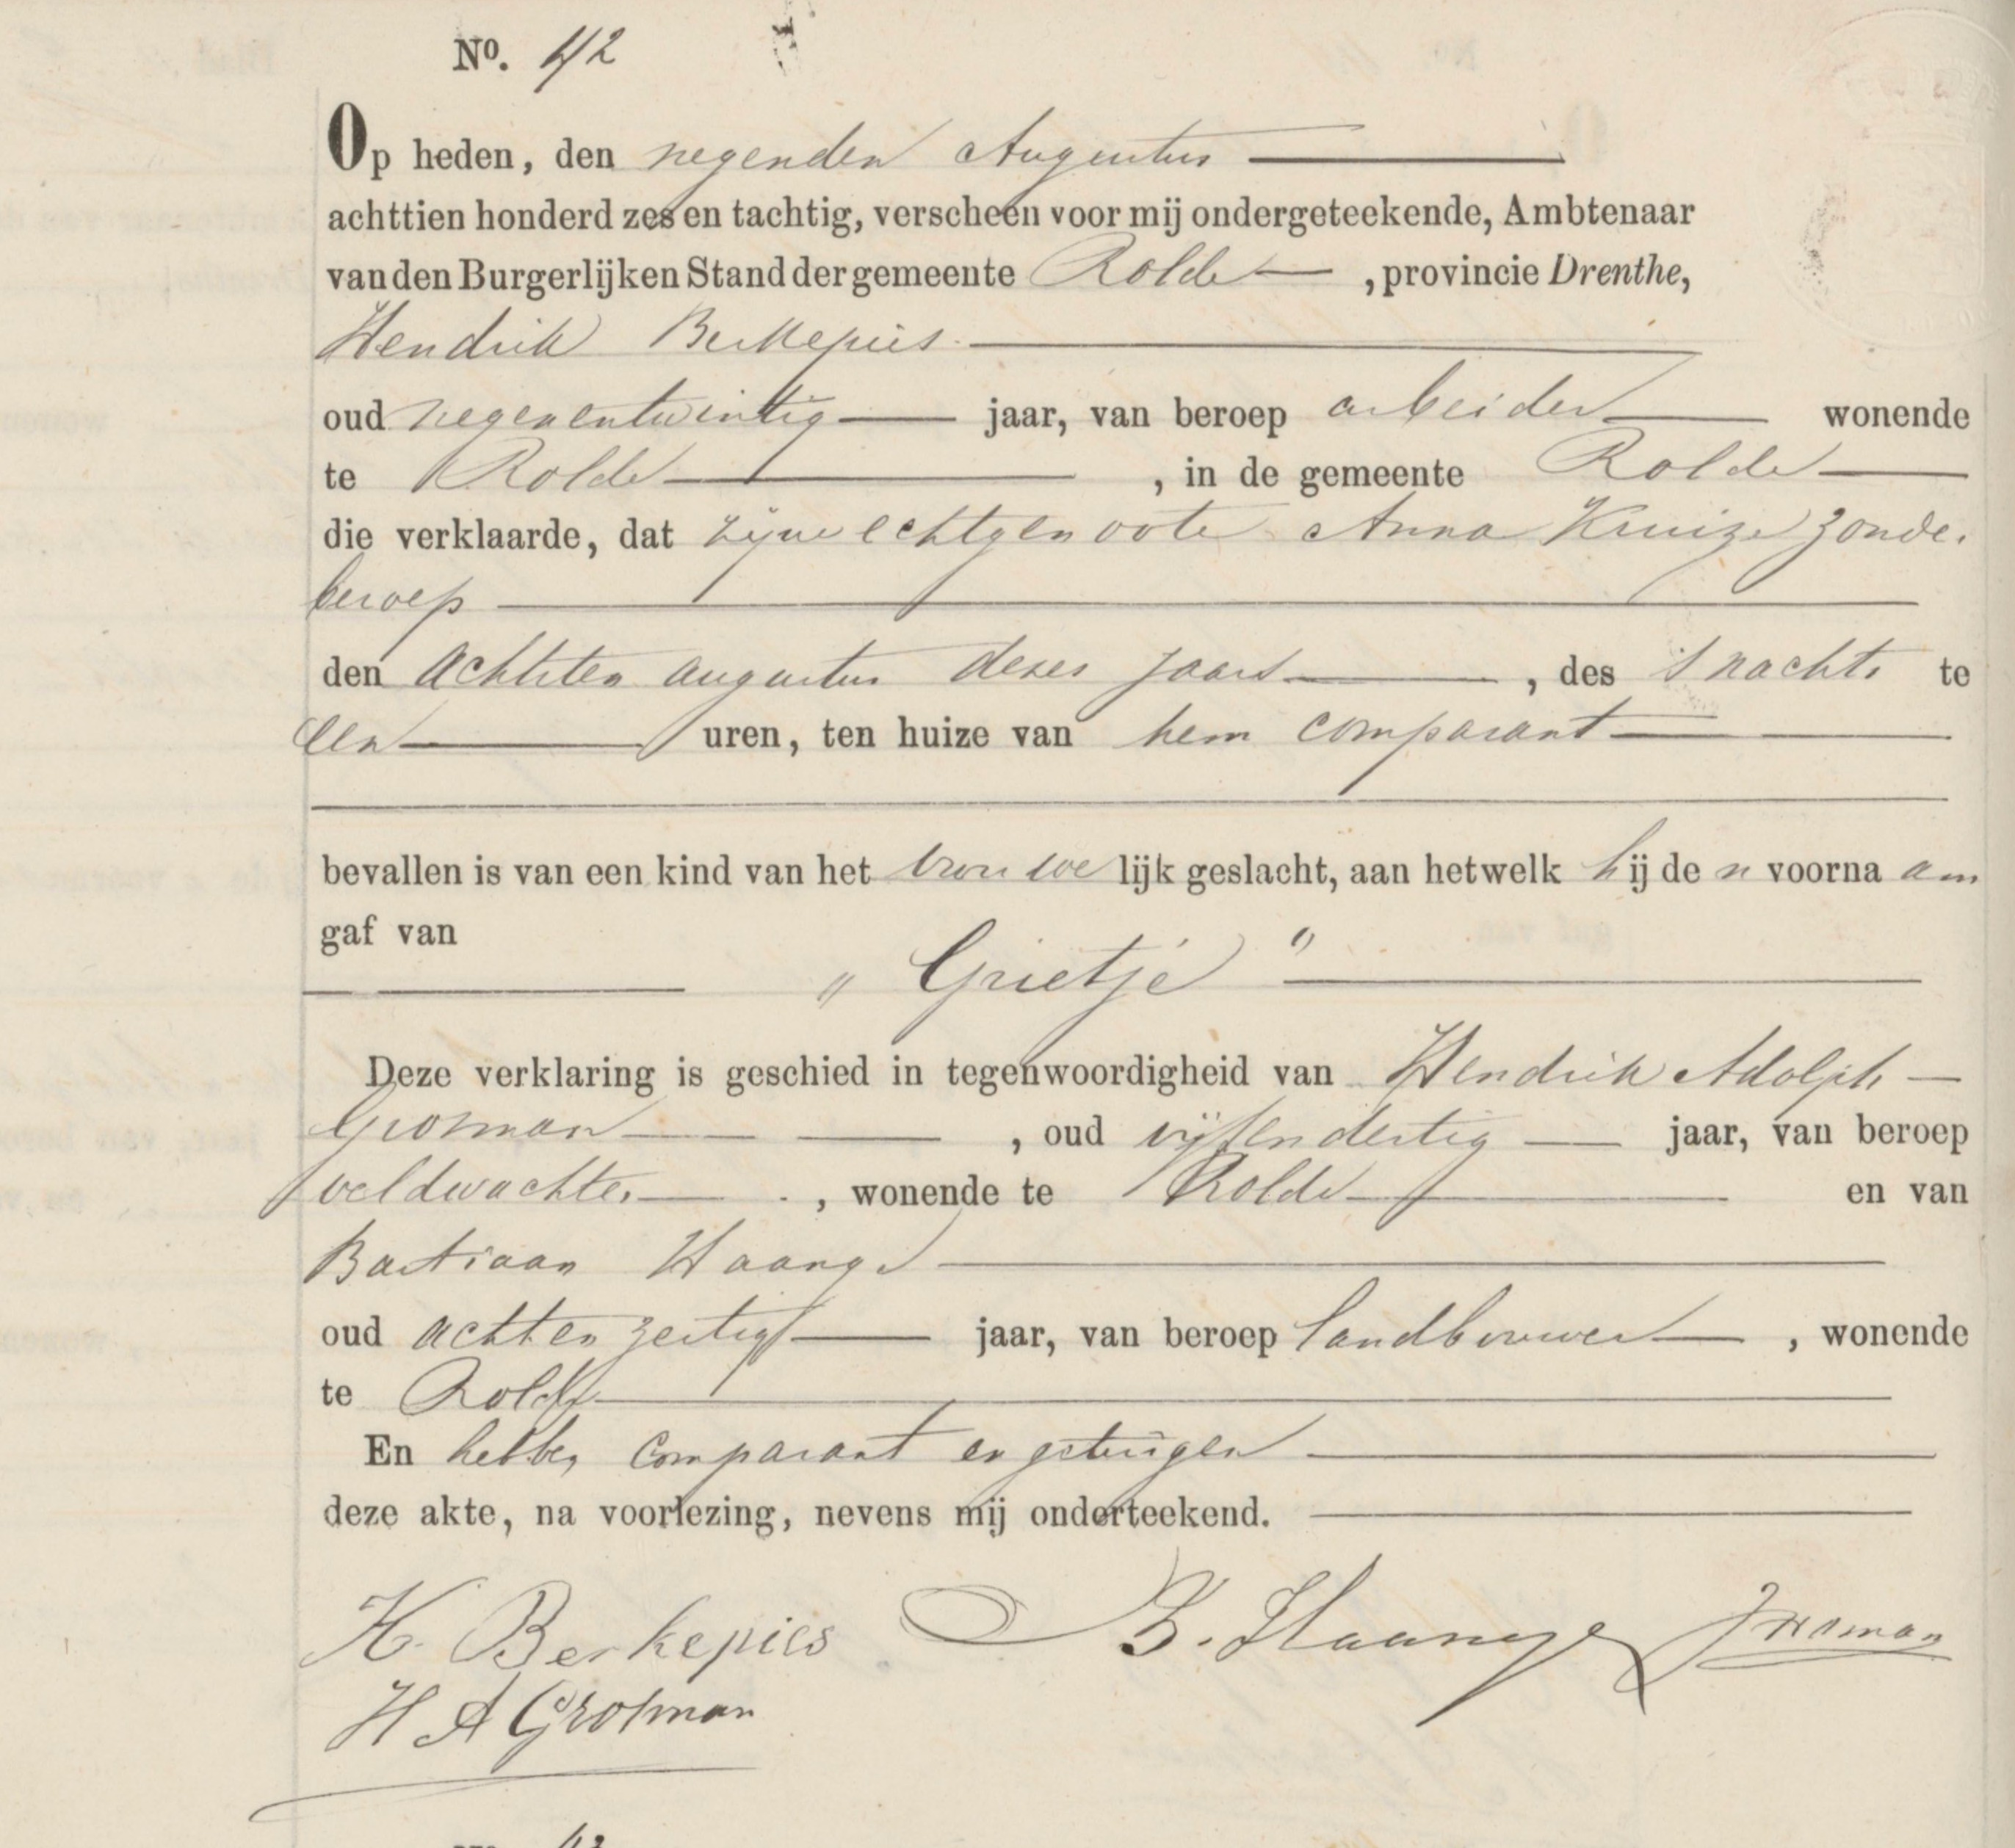 No. 42
Op heden, den negenden Augustus
achttien honderd zes en tachtig, verscheen voor mij ondergeteekende, Ambtenaar
van den Burgerlijken Stand der gemeente Rolde, provincie Drenthe,
Hendrik Berkepies
oud negenentwintig jaar, van beroep arbeider wonende
te Rolde, in de gemeente Rolde
die verklaarde, dat zijne echtgenoote Anna Kruize zonder
beroep
den achtsten augustus dezes jaars, des s nachts te
een uren, ten huize van hem comparant
bevallen is van een kind van het vrouwelijk geslacht, aan hetwelk hij de n voornaam
gaf van
" Grietje "
Deze verklaring is geschied in tegenwoordigheid van Hendrik Adolph
Grosman, oud vijfendertig jaar, van beroep
veldwachter, wonende te Rolde en van
Bastiaan Haange
oud achtenzestig jaar, van beroep landbouwer, wonende
te Rolde
En hebben comparant en getuigen
deze akte, na voorlezing, nevens mij onderteekend.
H. Berkepies B. Haange
H A Grosman